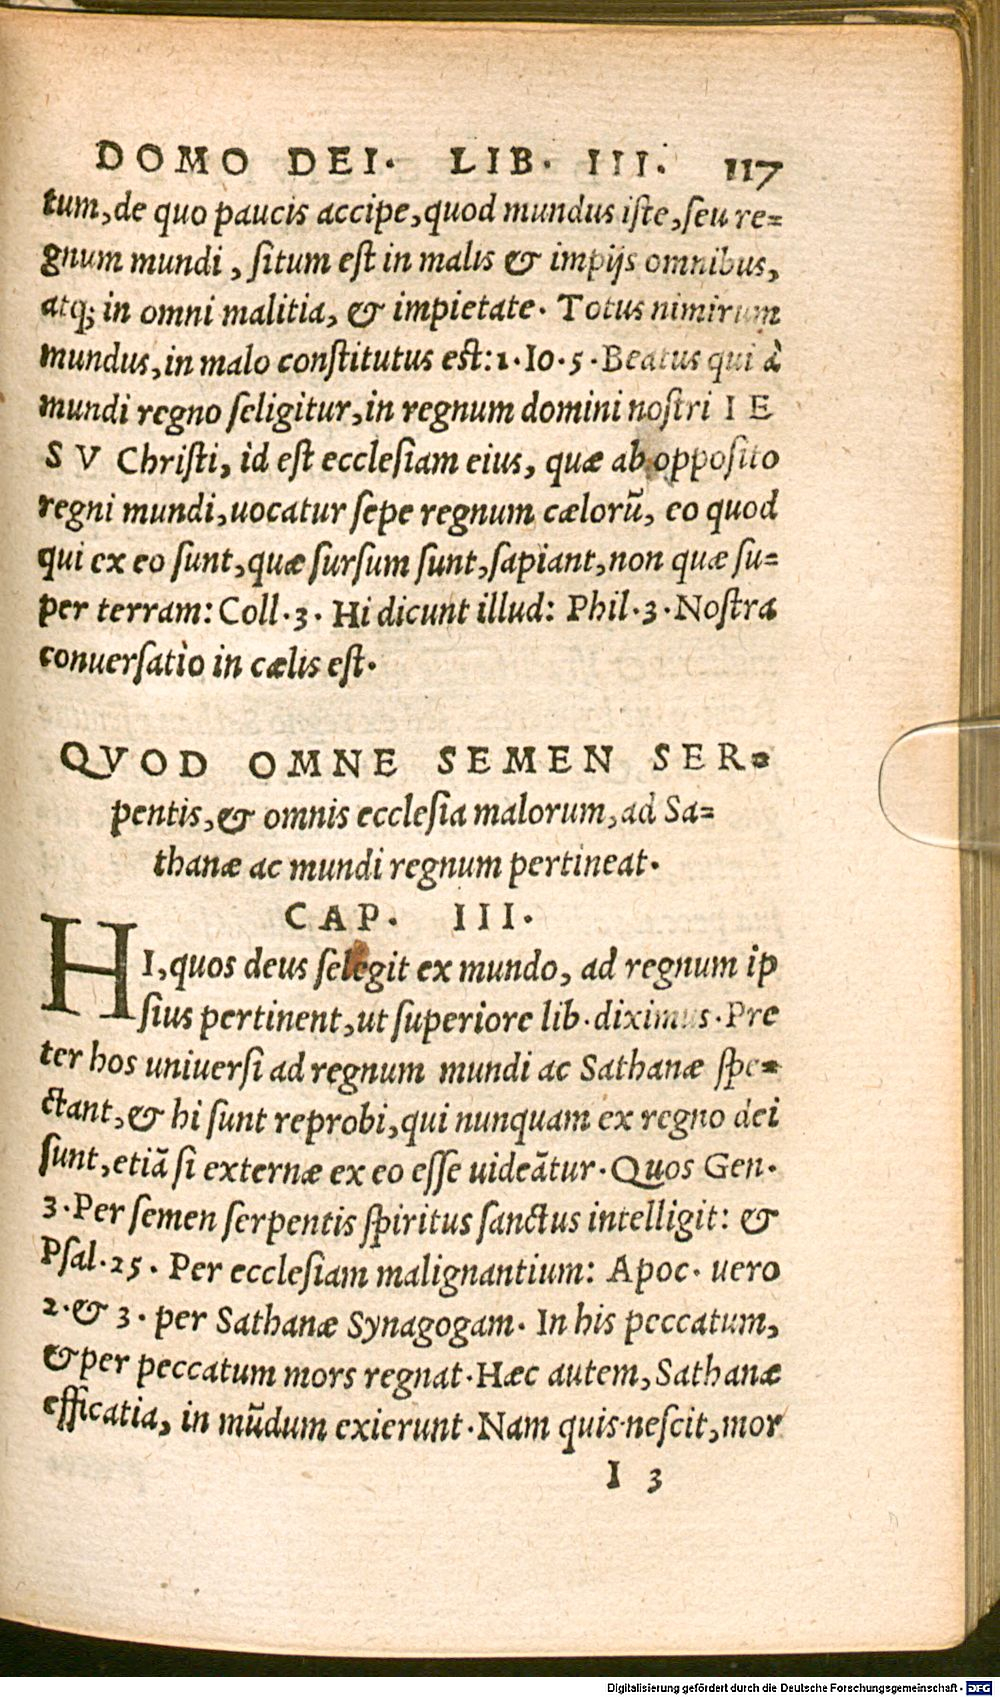 DOMO DEI. LIB. III. 117
tum, de quo paucis accipe, quod mundus iste, seu re=
gnum mundi, situm est in malis & impijs omnibus,
atq; in omni malitia, & impietate. Totus nimirum
mundus, in malo constitutus est: 1. Io. 5. Beatus qui à
mundi regno seligitur, in regnum domini nostri IE
SV Christi, id est ecclesiam eius, quæ ab opposito
regni mundi, uocatur sepe regnum cælorũ, eo quod
qui ex eo sunt, quæ sursum sunt, sapiant, non quæ su=
per terram: Coll. 3. Hi dicunt illud: Phil. 3. Nostra
conuersatio in cælis est.
QVOD OMNE SEMEN SER=
pentis, & omnis ecclesia malorum, ad Sa=
thanæ ac mundi regnum pertineat.
CAP. III.
HI, quos deus selegit ex mundo, ad regnum ip
sius pertinent, ut superiore lib. diximus. Pre
ter hos uniuersi ad regnum mundi ac Sathanæ spe=
ctant, & hi sunt reprobi, qui nunquam ex regno dei
sunt, etiã si externæ ex eo esse uideãtur. Quos Gen.
3. Per semen serpentis spiritus sanctus intelligit: &
Psal. 25. Per ecclesiam malignantium: Apoc. uero
2. & 3. per Sathanæ Synagogam. In his peccatum,
& per peccatum mors regnat. Hæc autem, Sathanæ
efficatia, in mũdum exierunt. Nam quis nescit, mor
I 3
Digitalisierung gefördert durch die Deutsche Forschungsgemeinschaft - DFG